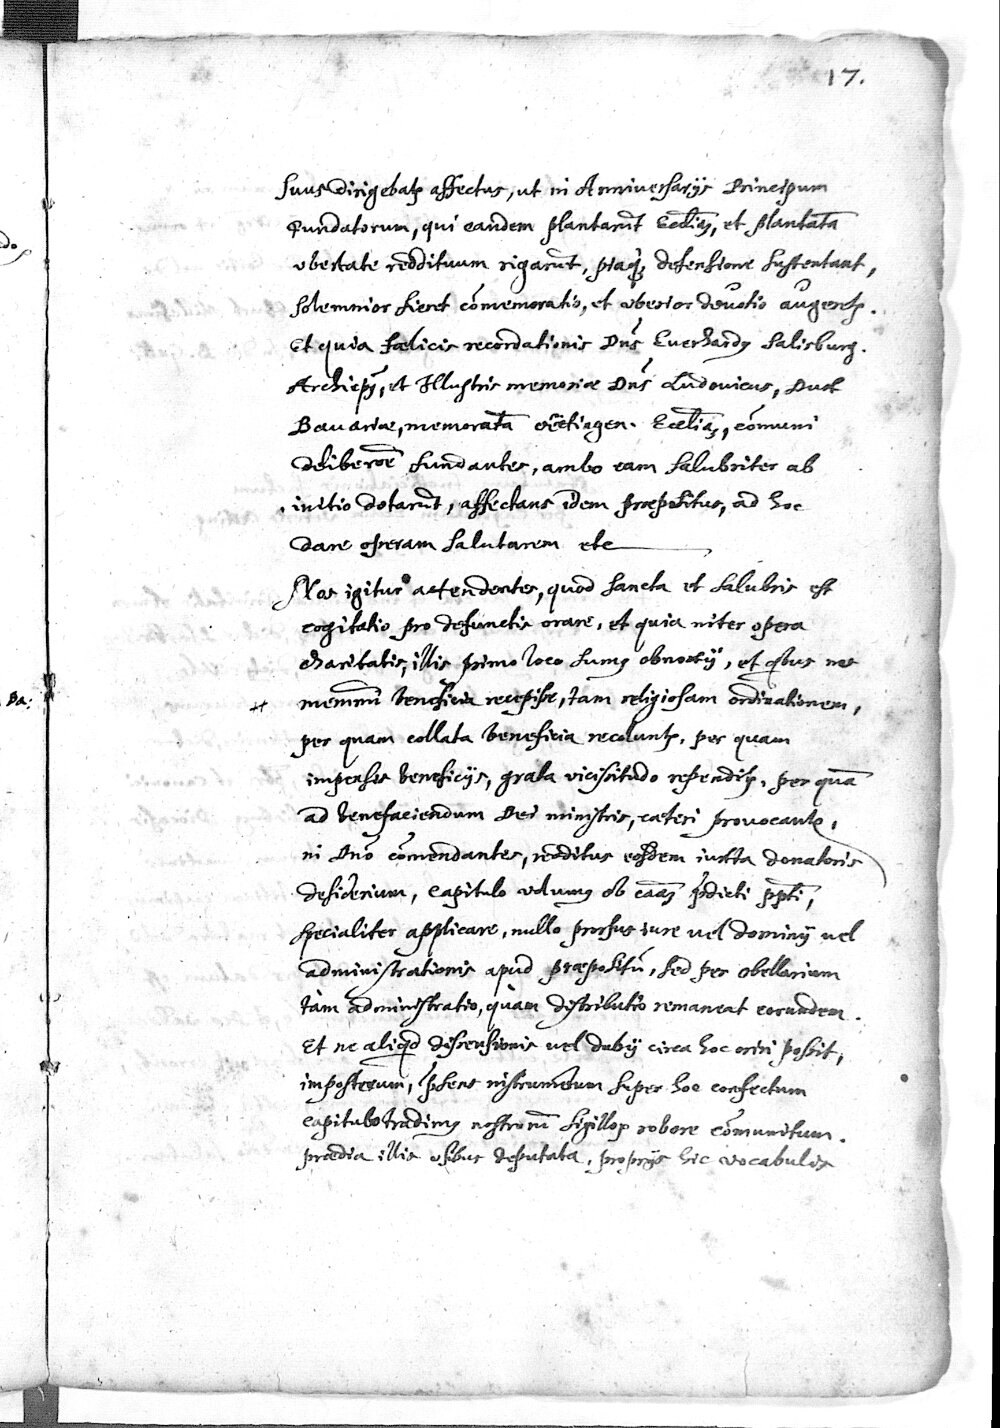 17.
suus dirigebatr affectus, ut in Anniversarijs Principum
Fundatorum, qui eandem plantarūt Eccliam, et plantatā
vbertate reddituum rigarūt, piaq defensione sustentant,
solemnior fieret cōmemoratio, et vberior deuotio augeretr.
Et quia fælicis recordationis Dns Euerhardg Salisburg.
Archiepg, et Illustris memoriæ Dns Ludouicus, Dux
Bauariæ, memoratā Eccliam, cōmuni
deliberoē fundantes, ambo eam salubriter ab
initio dotarūt, affectans idem præpositus, ad hoc
dare operam salutarem etc
Nos igitur attendentes, quod sancta et salubris est
cogitatio pro defunctis orare, et quia inter opera
charitatis, illis primo loco sumg obnoxij, et qbus nos
Da:
beneficia recepisse, tam religiosam ordinationem,
per quam collata beneficia recoluntr, per quam
impensis beneficijs, grata vicissitudo rependitr, per quā
ad benefaciendum Dei ministris, cæteri prouocantr,
in Dno cōmendantes, redditus eosdem iuxta donatoris
desiderium, Capitulo volumg ob pdicti ppti,
specialiter applicare, nullo prorsus iure vel dominij vel
administrationis apud præpositū, sed per obellarium
tàm administratio, quàm distributio remaneat eorundem.
Et ne aliqd dissensionis vel dubij circa hoc oriri possit,
imposterum, psens instrumētum super hoc confectum
capitulo tradimg nostrorū sigillorum robore cōmunitum.
prædia illis vsibus deputata, proprijs hic vocabulis